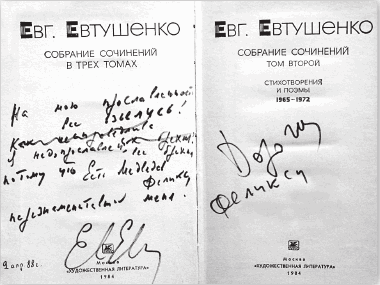 ЕВГ. ЕВТУШЕНКО
СОБРАНИЕ СОЧИНЕНИЙ
В ТРЕХ ТОМАХ
На мою прославленность
потому что есть Медведев Феликс
меня.
9 апр. 88 г.
Москва
«ХУДОЖЕСТВЕННАЯ ЛИТЕРАТУРА»
1984
ЕВГ. ЕВТУШЕНКО
СОБРАНИЕ СОЧИНЕНИЙ
ТОМ ВТОРОЙ
СТИХОТВОРЕНИЯ
И ПОЭМЫ
1965-1972
Дорогому
Феликсу
Москва
«ХУДОЖЕСТВЕННАЯ ЛИТЕРАТУРА»
1984